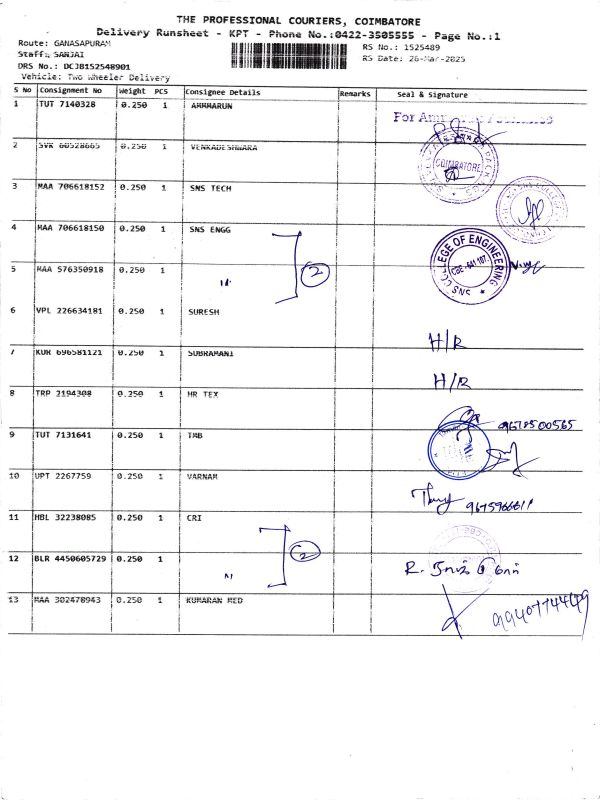 THE PROFESSIONAL COURIERS, COIMBATORE
Delivery Runsheet - KPT - Phone No.:0422-3505555 - Page No.:1
Route: GANASAPURAM
RS No.: 1525489
Staff: SANJAI
RS Date: 26-Mar-2025
DRS No.: DCJ8152548901
Vehicle: Two Wheeler Delivery
S No Consignment No Weight PCS Consignee Details Remarks Seal & Signature
1 TUT 7140328 0.250 1 AMMMARUN
For Amr
2 SVK 60528665 0.250 1 VENKADESHWARA
COIMBATORE
3 MAA 706618152 0.250 1 SNS TECH
4 MAA 706618150 0.250 1 SNS ENGG
2
SNS COLLEGE OF ENGINEERING
CBE - 641 107.
5 MAA 576350918 0.250 1 "
6 VPL 226634181 0.250 1 SURESH
H/R
7 KUR 696581121 0.250 1 SUBRAMANI
H/R
8 TRP 2194308 0.250 1 HR TEX
9 TUT 7131641 0.250 1 TMB
10 UPT 2267759 0.250 1 VARNAM
11 HBL 32238085 0.250 1 CRI
2
12 BLR 4450605729 0.250 1 "
13 MAA 302478943 0.250 1 KUMARAN MED